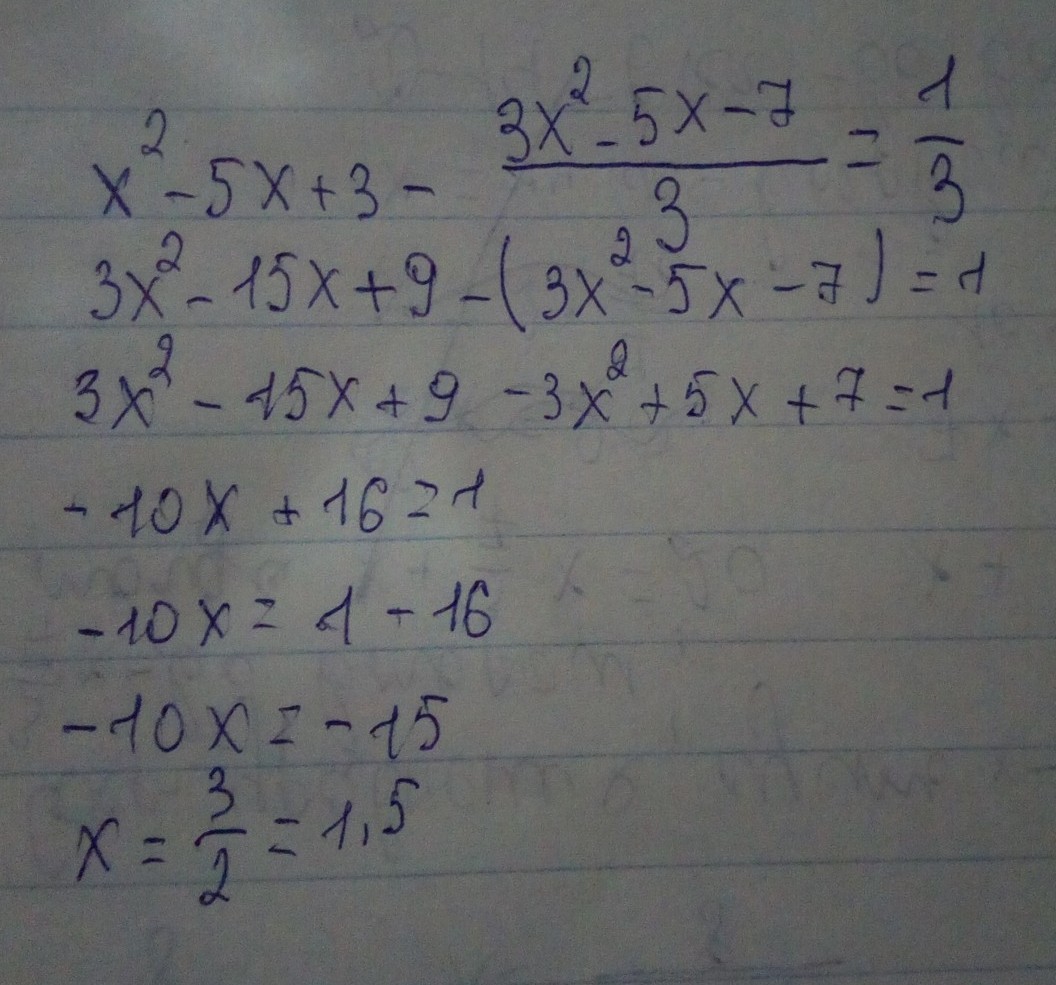 x² - 5x + 3 - (3x² - 5x - 7)/3 = 1/3
3x² - 15x + 9 - (3x² - 5x - 7) = 1
3x² - 15x + 9 - 3x² + 5x + 7 = 1
- 10x + 16 = 1
- 10x = 1 - 16
- 10x = - 15
x = 3/2 = 1,5